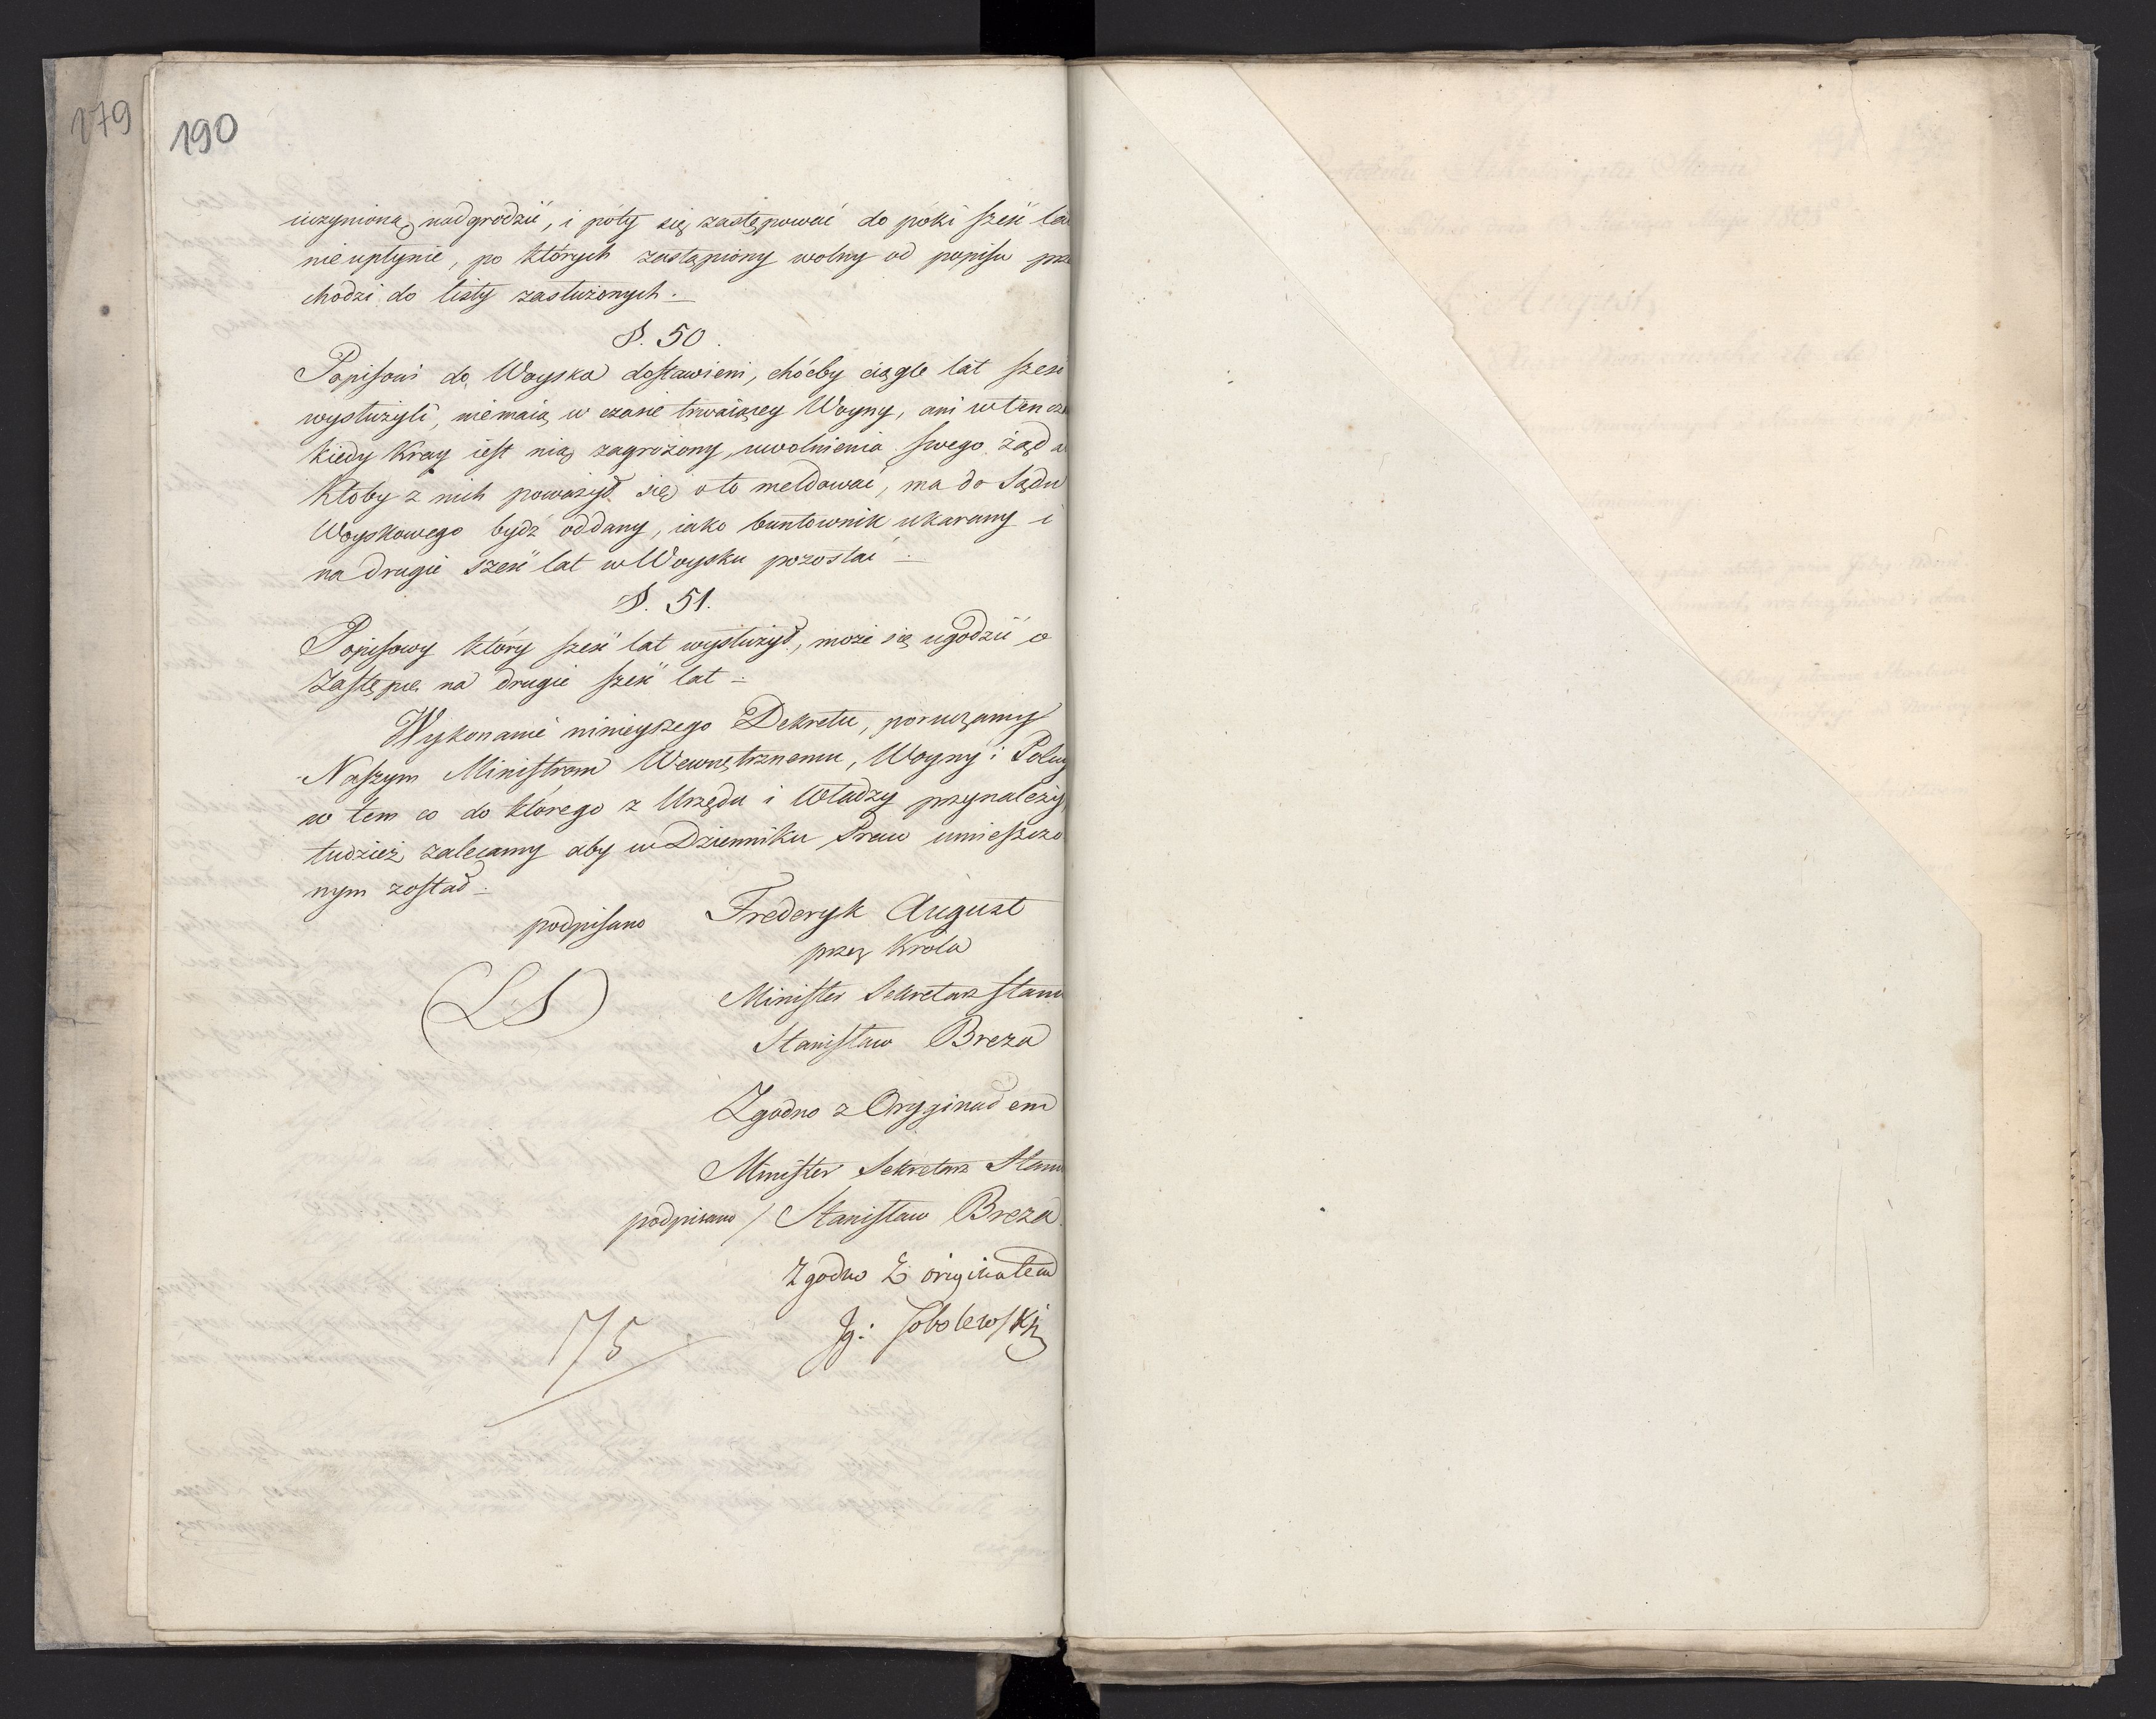 179
190
uczynioną nadgrodzić, i póty się zastępować do póki sześć la
nie upłynie, po których zastąpiony wolny od popisu prze
chodzi do listy zasłużonych.
§. 50.
Popisowi do Woyska dostawieni, choćby ciągle lat sześć
wysłużyli, niemaią w czasie trwaiącey Woyny, ani wtencza
kiedy Kray iest nią zagrożony, uwolnienia swego żąda
Ktoby z nich poważył się oto meldować, ma do Sądu
Woyskowego bydź oddany, iako buntownik ukarany i
na drugie sześć lat w Woysku pozostać.
§. 51.
Popisowy który sześć lat wysłużył, może się ugodzić o
Zastępcę na drugie sześć lat.
Wykonanie ninieyszego Dekretu, poruczamy
Naszym Ministrom Wewnętrznemu, Woyny i Policy
w tem co do którego z Urzędu i Władzy przynależy
tudzież zalecamy aby w Dzienniku Praw umieszczo
nym został.
podpisano Frederyk August
przez Króla
(LS) Minister Sekretarz Stanu
Stanisław Breza
Zgodno z Oryginałem
Minister Sekretarz Stanu
podpisano / Stanisław Breza.
Zgodno z originałem
Jg: Sobolewski
175